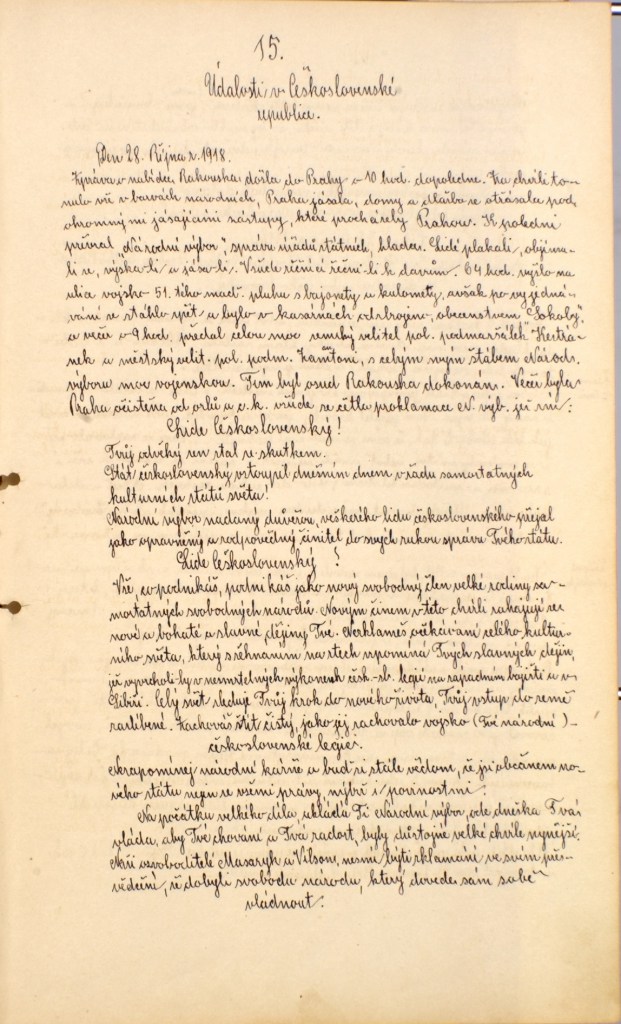 15.
Údalosti v Československé
republice.
Den 28. Října r. 1918.
Zpráva o nabídce Rakouska došla do Prahy o 10 hod. dopoledne. Za chvíli to-
nulo vše v barvách národních, Praha jásala, domy a dlažba se otřásala pod
ohromnými jásajícími zástupy, které procházely Prahou. K poledni
převzal Národní výbor; správu úřadů státních, hladce. Lidé plakali, objíma-
li se, výskali a jásali. Všude řečníci řečnili k davům. O 4 hod. vyšlo na
ulice vojsko 51. tého maď. pluku s bajonety a kulomety, avšak po vyjedná-
vání se stáhlo zpět a bylo v kasárnách odzbrojeno, obecenstvem "Sokoly",
a večer o 9 hod. předal celou moc zemský velitel pol. podmaršálek Kestrá-
nek a městský velit. pol. podm. Zanttoni, s celým svým štábem Národ.
výboru moc vojenskou. Tím byl osud Rakouska dokonán. Večer byla
Praha očištěna od orlů a c. k. všude se četla proklamace N. výb. jež zní:
Lide Československý!
Tvůj odvěký sen stal se skutkem.
Stát československý vstoupil dnešním dnem v řadu samostatných
kulturních států světa!
Národní výbor nadaný důvěrou, veškerého lidu československého přejal
jako oprávněný a zodpovědný činitel do svých rukou správu Tvého státu.
Lide Československý!
Vše, co podnikáš, podnikáš jako nový svobodný člen velké rodiny sa-
mostatných svobodných národů. Novým činem v této chvíli zahajují se
nové a bohaté a slavné dějiny Tvé. Nezklameš očekávání celého kultur-
ního světa, který s žehnáním na rtech vzpomíná Tvých slavných dějin,
jež vyvrcholily v nesmrtelných výkonech česk.-sl. legií na západním bojišti a v
Sibiři. Celý svět sleduje Tvůj krok do nového života, Tvůj vstup do země
zaslíbené. Zachováš štít čistý, jako jej zachovalo vojsko (Tvé národní)-
československé legie.
Nezapomínej národní kázně a buď si stále vědom, že jsi občanem no-
vého státu nejen se všemi právy, nýbrž i povinostmi.
Na počátku velkého díla ukládá Ti Národní výbor, ode dneška Tvá
vláda, aby Tvé chování a Tvá radost, byly důstojné velké chvíle nynější.
Naši osvoboditelé Masaryk a Vilson, nesmí býti zklamáni ve svém pře-
vědčení, že dobyli svobodu národu, který dovede sám sobě
vládnout.